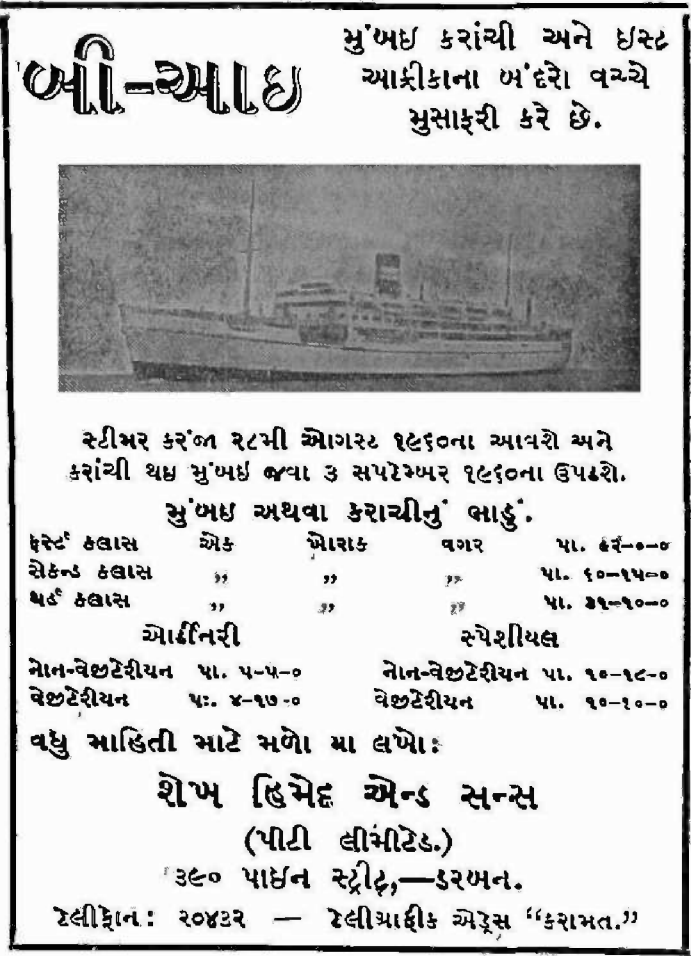 બી-આઇ
મુંબઇ કરાંચી અને ઇસ્ટ
આફ્રીકાના બંદરો વચ્ચે
મુસાફરી કરે છે.
સ્ટીમર કરંજા ૨૮મી ઓગસ્ટ ૧૯૬૦ના આવશે અને
કરાંચી થઇ મુંબઇ જવા ૩ સપટેમ્બર ૧૯૬૦ના ઉપડશે.
મુંબઇ અથવા કરાચીનું ભાડું.
ફર્સ્ટ કલાસ એક ખોરાક વગર પા.
સેકન્ડ કલાસ ,, ,, ,, પા. ૬૦-૧૫-૦
થર્ડ કલાસ ,, ,, ,, પા. ૩૧-૧૦-૦
ઓર્ડીનરી સ્પેશીયલ
નોન-વેજીટેરીયન પા. ૫-૫-૦ નોન-વેજીટેરીયન પા. ૧૦-૧૯-૦
વેજીટેરીયન પા. ૪-૧૭-૦ વેજીટેરીયન પા. ૧૦-૧૦-૦
વધુ માહિતી માટે મળો યા લખો:
શેખ હિમેદ એન્ડ સન્સ
(પીટી લીમીટેડ.)
૩૯૦ પાઇન સ્ટ્રીટ,—ડરબન.
ટેલીફોન: ૨૦૪૩૨ — ટેલીગ્રાફીક એડ્રેસ “કરામત.”